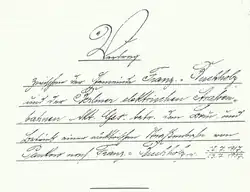 Vertrag
zwischen der Gemeinde Franz.-Buchholz
und der Berliner elektrischen Straßen-
bahnen Akt. Ges. betr. den Bau und
Betrieb einer elektrischen Straßenbahn von
Pankow nach Franz.-Buchholz